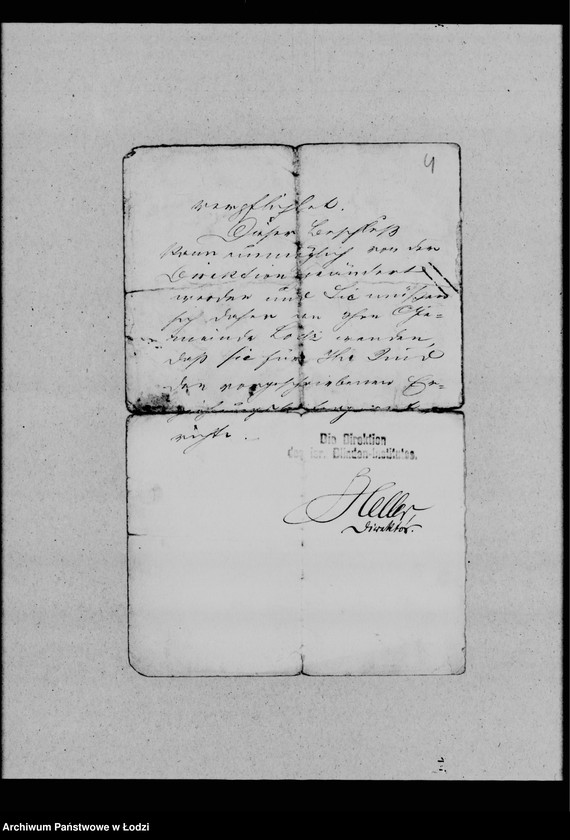 4
verpflichtet.
Dieser Beschluß
kann unmöglich von der
Direktion geändert
werden und Sie müssen
sich daher an Ihre Ge=
meinde Lodz wenden,
daß sie für Ihr Kind
den vorgeschriebenen Er=
richte.
Die Direktion
des isr. Blinden-Institutes.
Heller,
Direktor.
Archiwum Państwowe w Łodzi